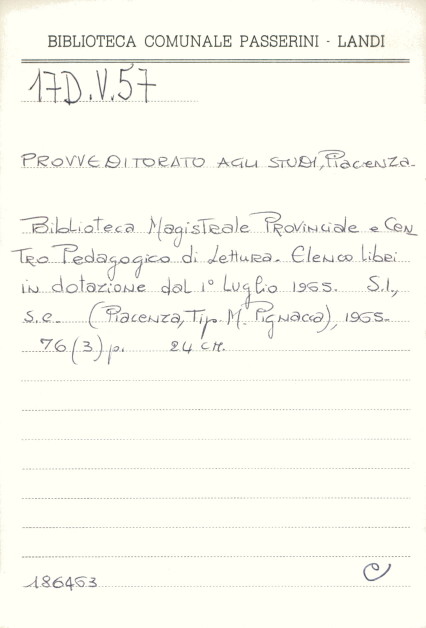 BIBLIOTECA COMUNALE PASSERINI - LANDI
17D.V.57
PROVVEDITORATO AGLI STUDI, Piacenza.
Biblioteca Magistrale Provinciale e Cen
tro Pedagogico di Lettura. Elenco libri
in dotazione dal 1° Luglio 1955. S.l.,
s.e. (Piacenza, Tip. M. Pignacca), 1955.
76 (3) p. 24 cm.
186453
C